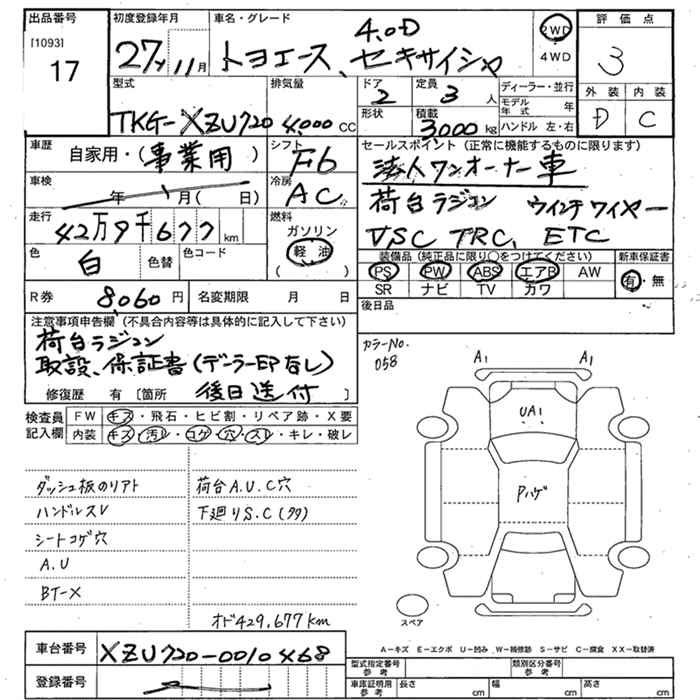 出品番号
[1093]
17
初度登録年月
27年11月
車名・グレード
4.0D
トヨエース、セキサイシャ
2WD
4WD
評価点
3
外装 内装
D C
型式
TKG-XZU720
排気量
4,000 CC
ドア
2
定員
3 人
形状
積載
3,000 kg
ディーラー・並行
モデル年式 年
ハンドル 左・右
車歴
自家用・(事業用)
シフト
F6
セールスポイント(正常に機能するものに限ります)
法人ワンオーナー車
荷台ラジコン ウインチワイヤー
VSC TRC、ETC
車検
年 月(日)
冷房
AC
走行
42万9千677 km
燃料
ガソリン
軽油
( )
色
白
色替
色コード
装備品(純正品に限り〇をつけてください)
PS PW ABS エアB AW
SR ナビ TV カワ
新車保証書
有・無
R券 8,060円
名変期限 月 日
後日品
注意事項申告欄(不具合内容等は具体的に記入して下さい)
荷台ラジコン
取設、保証書(デーラーEPなし)
後日送付
修復歴 有[箇所 ]
カラーNo.
058
検査員記入欄
FW キズ・飛石・ヒビ割・リペア跡・X要
内装 キズ・汚レ・コゲ・穴・スレ・キレ・破レ
ダッシュ板のリアト
ハンドルスレ
シートコゲ穴
A.U
BT-X
荷台A.U.C穴
下廻りS.C(タタ)
オド429,677km
A1 A1
UA1
Pハゲ
スペア
A-キズ E-エクボ U-凹み W-補修跡 S-サビ C-腐食 XX-取替済
車台番号
XZU720-0010468
登録番号
型式指定番号
参考
類別区分番号
参考
車庫証明用
参考
長さ cm 幅 cm 高さ cm